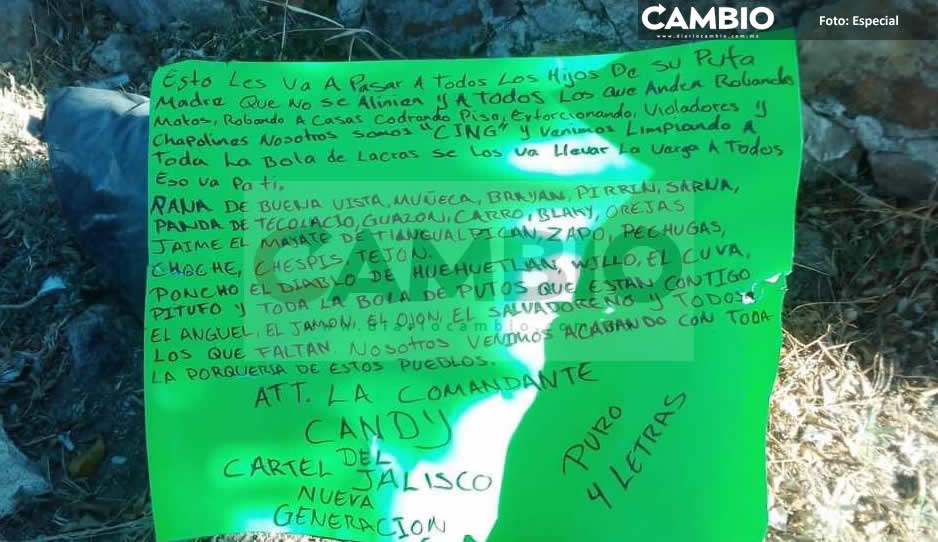 CAMBIO
www.diariocambio.com.mx
Foto: Especial
Esto Les Va A Pasar A Todos Los Hijos De su Puta
Madre Que No se Alinien y A Todos Los Que Anden Robando
Motos, Robando A Casas Codrando Piso, Extorcionando, Violadores y
Chapolines Nosotros somos "CJNG" y venimos Limpiando A
Toda La Bola de Lacras se Los va Llevar La verga A Todos
Eso va Pa ti.
RANA DE BUENA VISTA, MUÑECA, BRAYAN, PIRRIN, SARNA,
PANDA DE TECOLACIO, GUAZON, CARRO, BLAKY, OREJAS
JAIME EL MAYATE DE TIANGUALPICAN, ZAPO, PECHUGAS,
CHOCHE, CHESPIS TEJON.
PONCHO EL DIABLO DE HUEHUETLAN, WILLO, EL CUVA,
PITUFO Y TODA LA BOLA DE PUTOS QUE ESTAN CONTIGO
EL ANGUEL, EL JAMON, EL OJON, EL SALVADOREÑO Y TODOS
LOS QUE FALTAN. NOSOTROS VENIMOS ACABANDO CON TODA
LA PORQUERIA DE ESTOS PUEBLOS.
ATT. LA COMANDANTE
CANDY
CARTEL DEL
JALISCO
NUEVA
GENERACION
PURO
4 LETRAS
CAMBIO
www.diariocambio.com